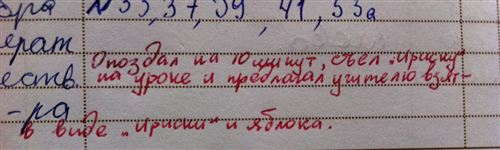 бра №35, 37, 39, 41, 53а
ерат
Опоздал на 10 минут, съел „Ириску"
еств. на уроке и предлагал учителю взят-
-ра
в виде „Ириски" и яблока.